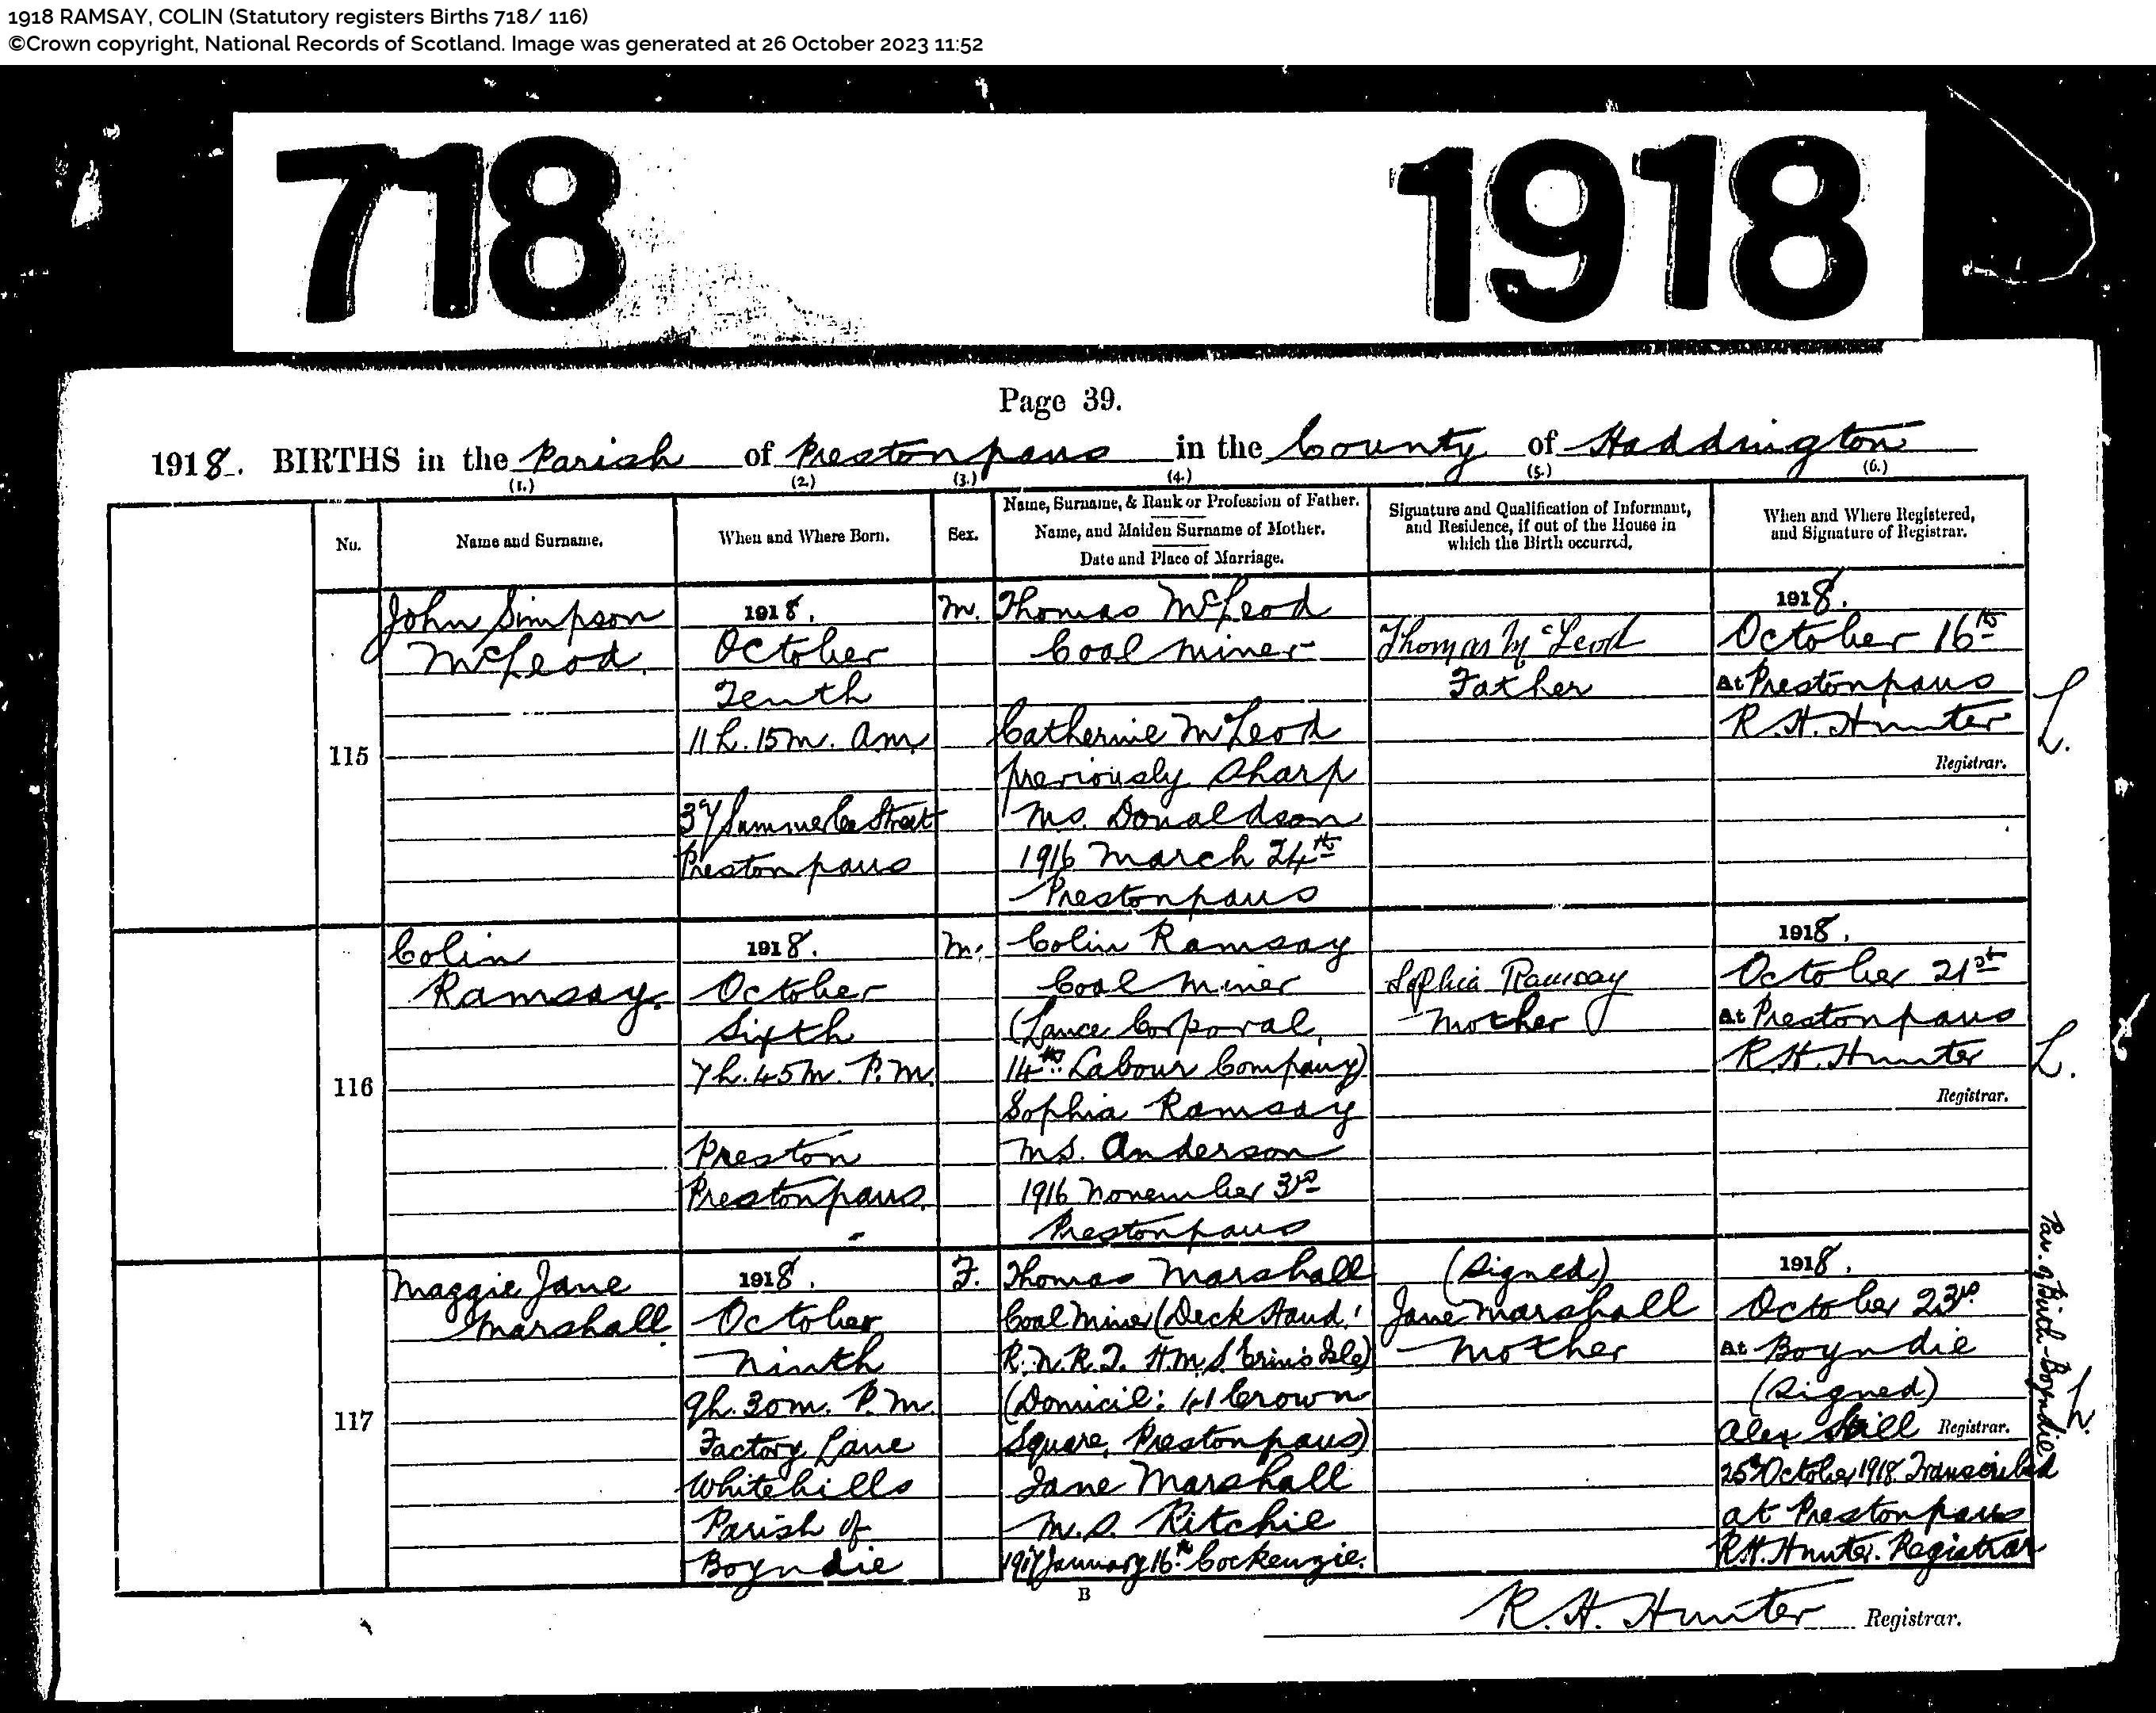 1918 RAMSAY, COLIN (Statutory registers Births 718/ 116)
©Crown copyright, National Records of Scotland. Image was generated at 26 October 2023 11:52
718 1918
Page 39.
1918. BIRTHS in the Parish of Prestonpans in the County of Haddington
(1.) (2.) (3.) (4.) (5.) (6.)
No.
Name and Surname.
When and Where Born.
Sex.
Name, Surname, & Rank or Profession of Father.
Name, and Maiden Surname of Mother.
Date and Place of Marriage.
Signature and Qualification of Informant,
and Residence, if out of the House in
which the Birth occurred.
When and Where Registered,
and Signature of Registrar.
115
John Simpson
McLeod.
1918.
October
Tenth
11 h. 15 m. a.m.
37 Summerlee Street
Prestonpans
M.
Thomas McLeod
Coal Miner
Catherine McLeod
previously Sharp
M.S. Donaldson
1916 March 24th
Prestonpans
Thomas McLeod
Father
1918.
October 16th
At Prestonpans
R.H. Hunter
Registrar.
L.
116
Colin
Ramsay.
1918.
October
Sixth
7 h. 45 m. P.M.
Preston
Prestonpans.
M.
Colin Ramsay
Coal Miner
(Lance Corporal,
14th Labour Company)
Sophia Ramsay
M.S. Anderson
1916 November 3rd
Prestonpans
Sophia Ramsay
Mother
1918.
October 21st
At Prestonpans
R.H. Hunter
Registrar.
L.
117
Maggie Jane
Marshall
1918.
October
Ninth
9h. 30m. P.M.
Factory Lane
Whitehills
Parish of
Boyndie
F.
Thomas Marshall
Coal Miner (Deck Hand,
R.N.R.T. H.M.S Erin's Isle)
(Domicil: 41 Crown
Square, Prestonpans)
Jane Marshall
M.S. Ritchie
1917 January 16th Cockenzie.
(Signed)
Jane Marshall
Mother
1918.
October 23rd
At Boyndie
(Signed)
Alex Registrar.
25th October 1918 Transcribed
at Prestonpans
R.H. Hunter. Registrar
Par. of Birth - Boyndie
L.
B
R.H. Hunter Registrar.